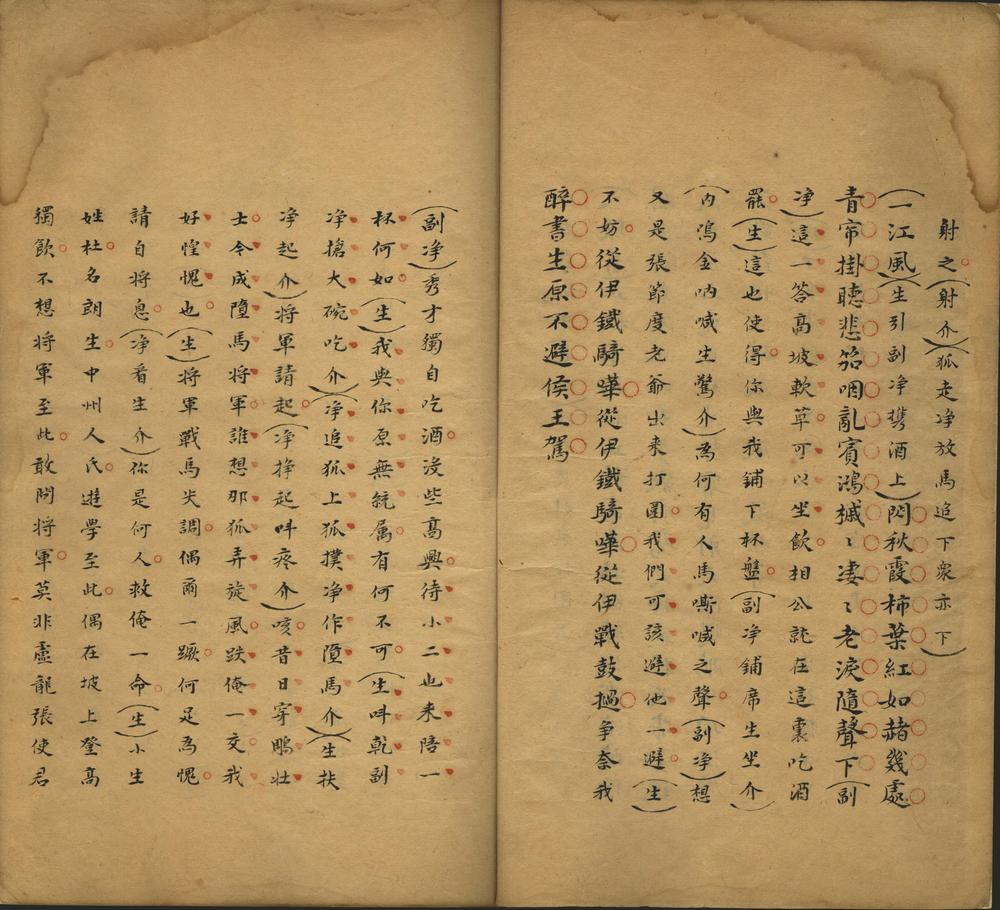 射之(射介)(狐走净放馬追下衆亦下)
(一江風)(生引副净携酒上)閃秋霞柿葉紅如赭幾處
青帘掛聴悲笳咽亂賓鴻槭〻淒〻老淚隨聲下(副
净)這一答高坡軟草可以坐飲相公就在這裏吃酒
罷(生)這也使得你與我鋪下杯盤(副净鋪席生坐介)
(内鳴金吶喊生驚介)為何有人馬嘶喊之聲(副净)想
又是張節度老爺出来打圍我們可該避他一避(生)
不妨從伊鐵騎嘩從伊鐵騎嘩從伊戰鼓撾争奈我
醉書生原不避侯王駕
(副净)秀才獨自吃酒没些高興待小二也来陪一
杯何如(生)我與你原無統属有何不可(生呌乾副
净搶大碗吃介)(净追狐上狐撲净作墮馬介)(生扶
净起介)將軍請起(净挣起呌疼介)咳昔日穿鵰壯
士今成墮馬將軍誰想那狐弄旋風跌俺一交我
好惶愧也(生)將軍戰馬失調偶爾一蹶何足為愧
請自將息(净看生介)你是何人救俺一命(生)小生
姓杜名朗生中州人氏遊學至此偶在坡上登高
獨飲不想將軍至此敢問將軍莫非盧龍張使君